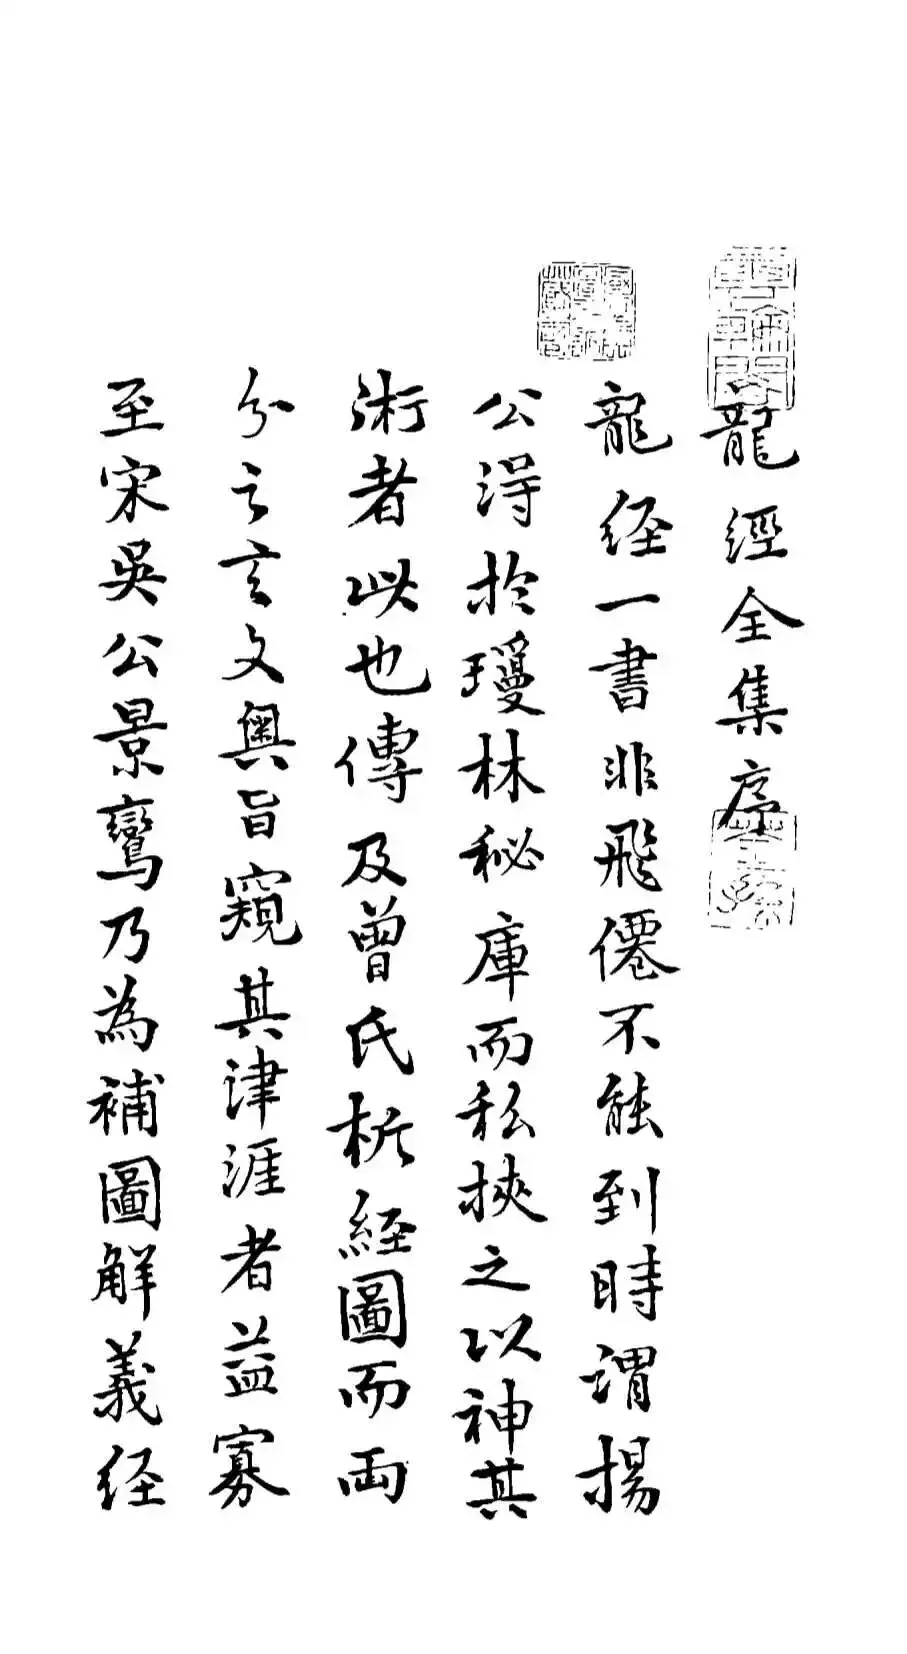 龍經全集序
龍经一書非飛僊不能到時謂揚
公淂於瓊林秘庫而私挾之以神其
術者此也傳及曾氏析經圖而両
分之言文奧旨窺其津涯者益寡
至宋吳公景鸞乃為補圖解義经